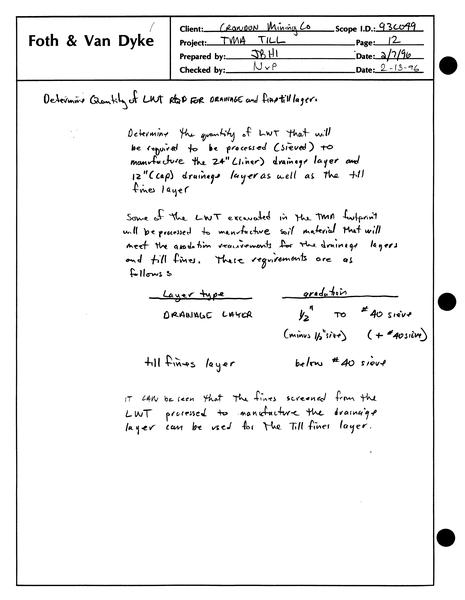 Foth & Van Dyke
Client: CRANDON Mining Co Scope I.D.: 93C049
Project: TMA TILL Page: 12
Prepared by: JBH1 Date: 2/7/96
Checked by: NVP Date: 2-13-96
Determine Quantity of LWT REQD FOR DRAINAGE and fine till layer.
Determine the quantity of LWT that will
be required to be processed (sieved) to
manufacture the 24" (liner) drainage layer and
12" (cap) drainage layer as well as the till
fines layer
Some of the LWT excavated in the TMA footprint
will be processed to manufacture soil material that will
meet the gradation requirements for the drainage layers
and till fines. These requirements are as
follows:
Layer type gradation
DRAINAGE LAYER 1/2" TO #40 sieve
(minus 1/2" size) (+ #40 sieve)
till fines layer below #40 sieve
IT CAN be seen that the fines screened from the
LWT processed to manufacture the drainage
layer can be used for the Till fines layer.